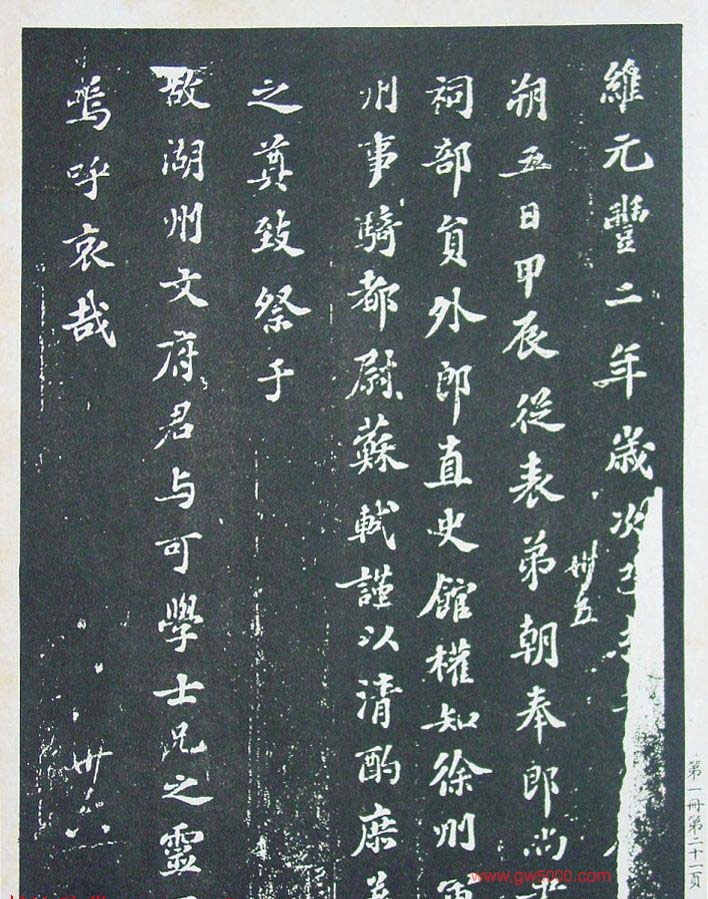 維元豐二年歲次
朔五日甲辰從表弟朝奉郎尚
祠部員外郎直史館權知徐州軍
州事騎都尉蘇軾謹以清酌庶羞
之奠致祭于
故湖州文府君与可學士兄之靈
嗚呼哀哉
卅五
卅六
第一冊第二十一頁
www.gw8000.com